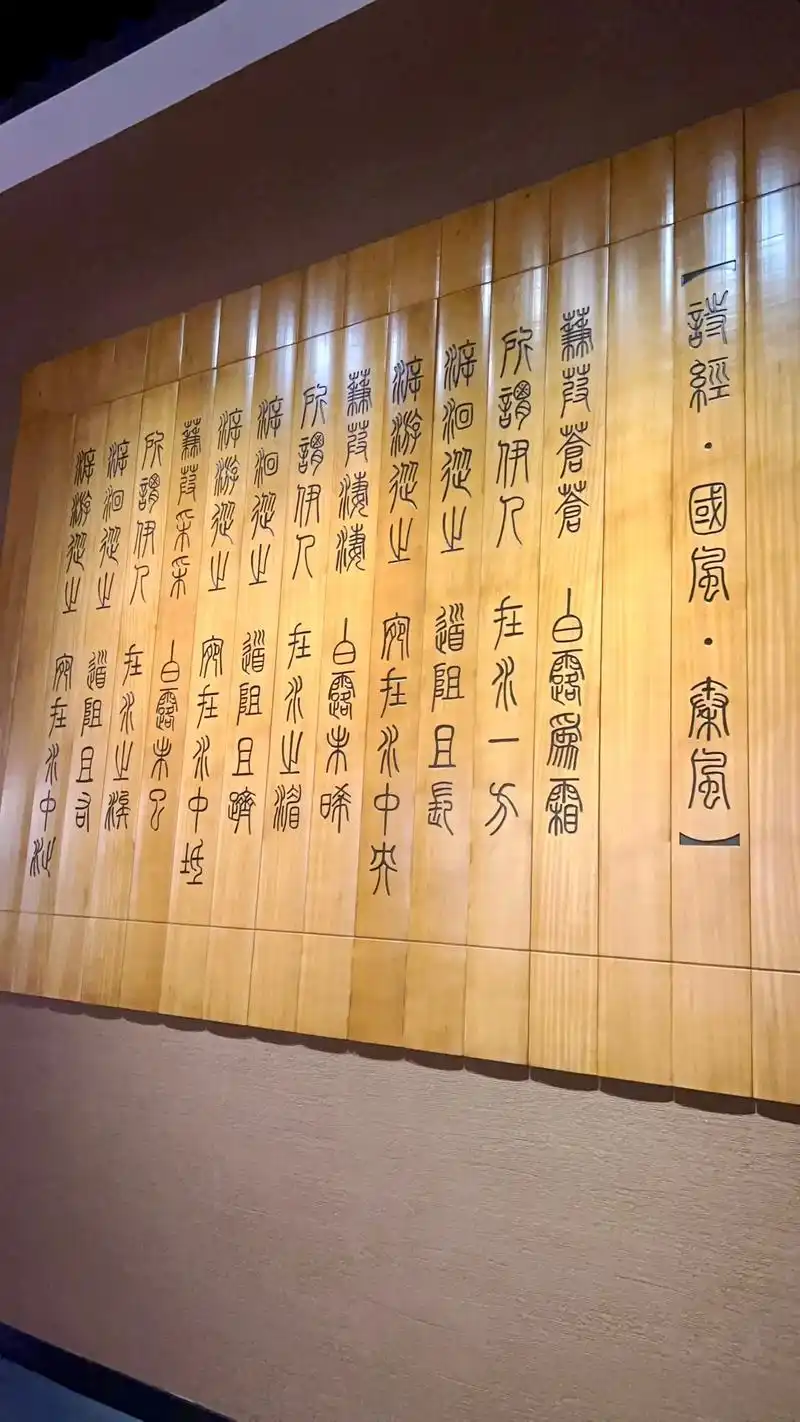 【詩經·國風·秦風】
蒹葭蒼蒼 白露爲霜
所謂伊人 在水一方
溯洄從之 道阻且長
溯游從之 宛在水中央
蒹葭淒淒 白露未晞
所謂伊人 在水之湄
溯洄從之 道阻且躋
溯游從之 宛在水中坻
蒹葭采采 白露未已
所謂伊人 在水之涘
溯洄從之 道阻且右
溯游從之 宛在水中沚